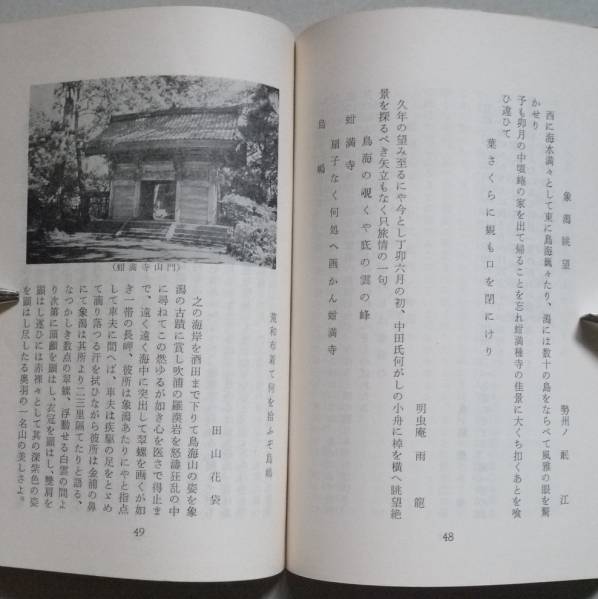 象潟眺望
勢州ノ 眠江
西に海水満々として東に鳥海巍々たり、潟には数十の島をならべて風雅の眼を驚
かせり
子も卯月の中頃蜂の家を出て帰ることを忘れ蚶満種寺の佳景に大くち扣くあとを喰
ひ違ひて
葉さくらに観も口を閉にけり
明虫庵 雨龍
久年の望み至るにや今とし丁卯六月の初、中田氏何がしの小舟に棹を横へ眺望絶
景を探るべき矢立もなく只旅情の一句
鳥海の覗くや底の雲の峰
蚶満寺
扇子なく何処へ画かん蚶満寺
鳥嶋
48
荒和布着て何を拾ふぞ鳥嶋
田山花袋
之の海岸を酒田まで下りて鳥海山の姿を象
潟の古蹟に賞し吹浦の羅漢岩を怒濤狂乱の中
に尋ねてこの燃ゆるが如き心を医さで得止ま
で、遠く遠く海中に突出して翠螺を画くが如
き一帯の長岬、彼所は象潟あたりにやと指点
して車夫に問へば、車夫は疾駆の足をとゞめ
て滴り落つる汗を拭ひながら彼所は金浦の鼻
にて象潟は其所より二三里隔てたりと語る、
なつかしき数点の翠螺、浮動せる白雲の間よ
り次第に頂顱を顕はし、玄冠を顕はし、雙肩を
顕はし遂ひには赤裸々として其の深紫色の姿
を顕はし尽したる奥羽の一名山の美しさよ。
(蚶満寺山門)
49